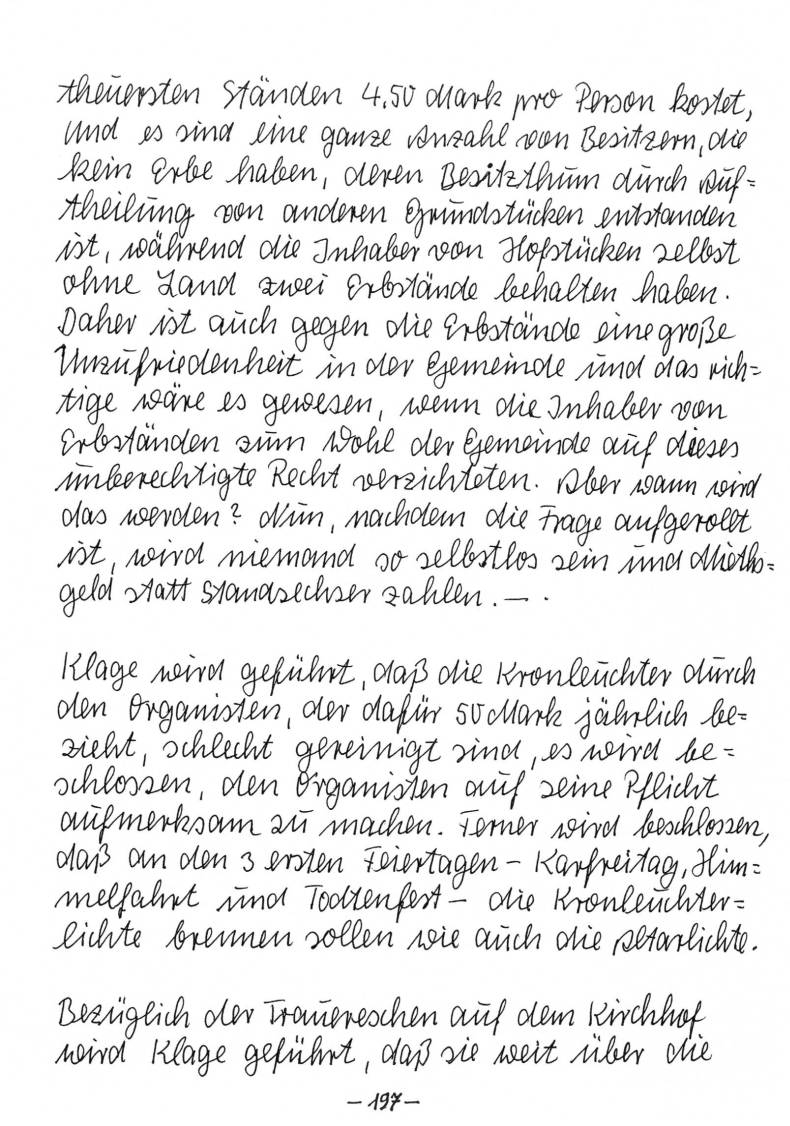 theuersten Ständen 4.50 Mark pro Person kostet,
und es sind eine ganze Anzahl von Besitzern, die
kein Erbe haben, deren Besitzthum durch Auf=
theilung von anderen Grundstücken entstanden
ist, während die Inhaber von Hofstücken selbst
ohne Land zwei Erbstände behalten haben.
Daher ist auch gegen die Erbstände eine große
Unzufriedenheit in der Gemeinde und das rich=
tige wäre es gewesen, wenn die Inhaber von
Erbständen zum Wohl der Gemeinde auf dieses
unberechtigte Recht verzichteten. Aber wann wird
das werden? Nun, nachdem die Frage aufgerollt
ist, wird niemand so selbstlos sein und Mieths=
geld statt Standsechser zahlen. — .
Klage wird geführt, daß die Kronleuchter durch
den Organisten, der dafür 50 Mark jährlich be=
zieht, schlecht gereinigt sind, es wird be=
schlossen, den Organisten auf seine Pflicht
aufmerksam zu machen. Ferner wird beschlossen,
daß an den 3 ersten Feiertagen – Karfreitag, Him=
melfahrt und Todtenfest – die Kronleuchter=
lichte brennen sollen wie auch die Altarlichte.
Bezüglich der Trauereschen auf dem Kirchhof
wird Klage geführt, daß sie weit über die
– 197 –